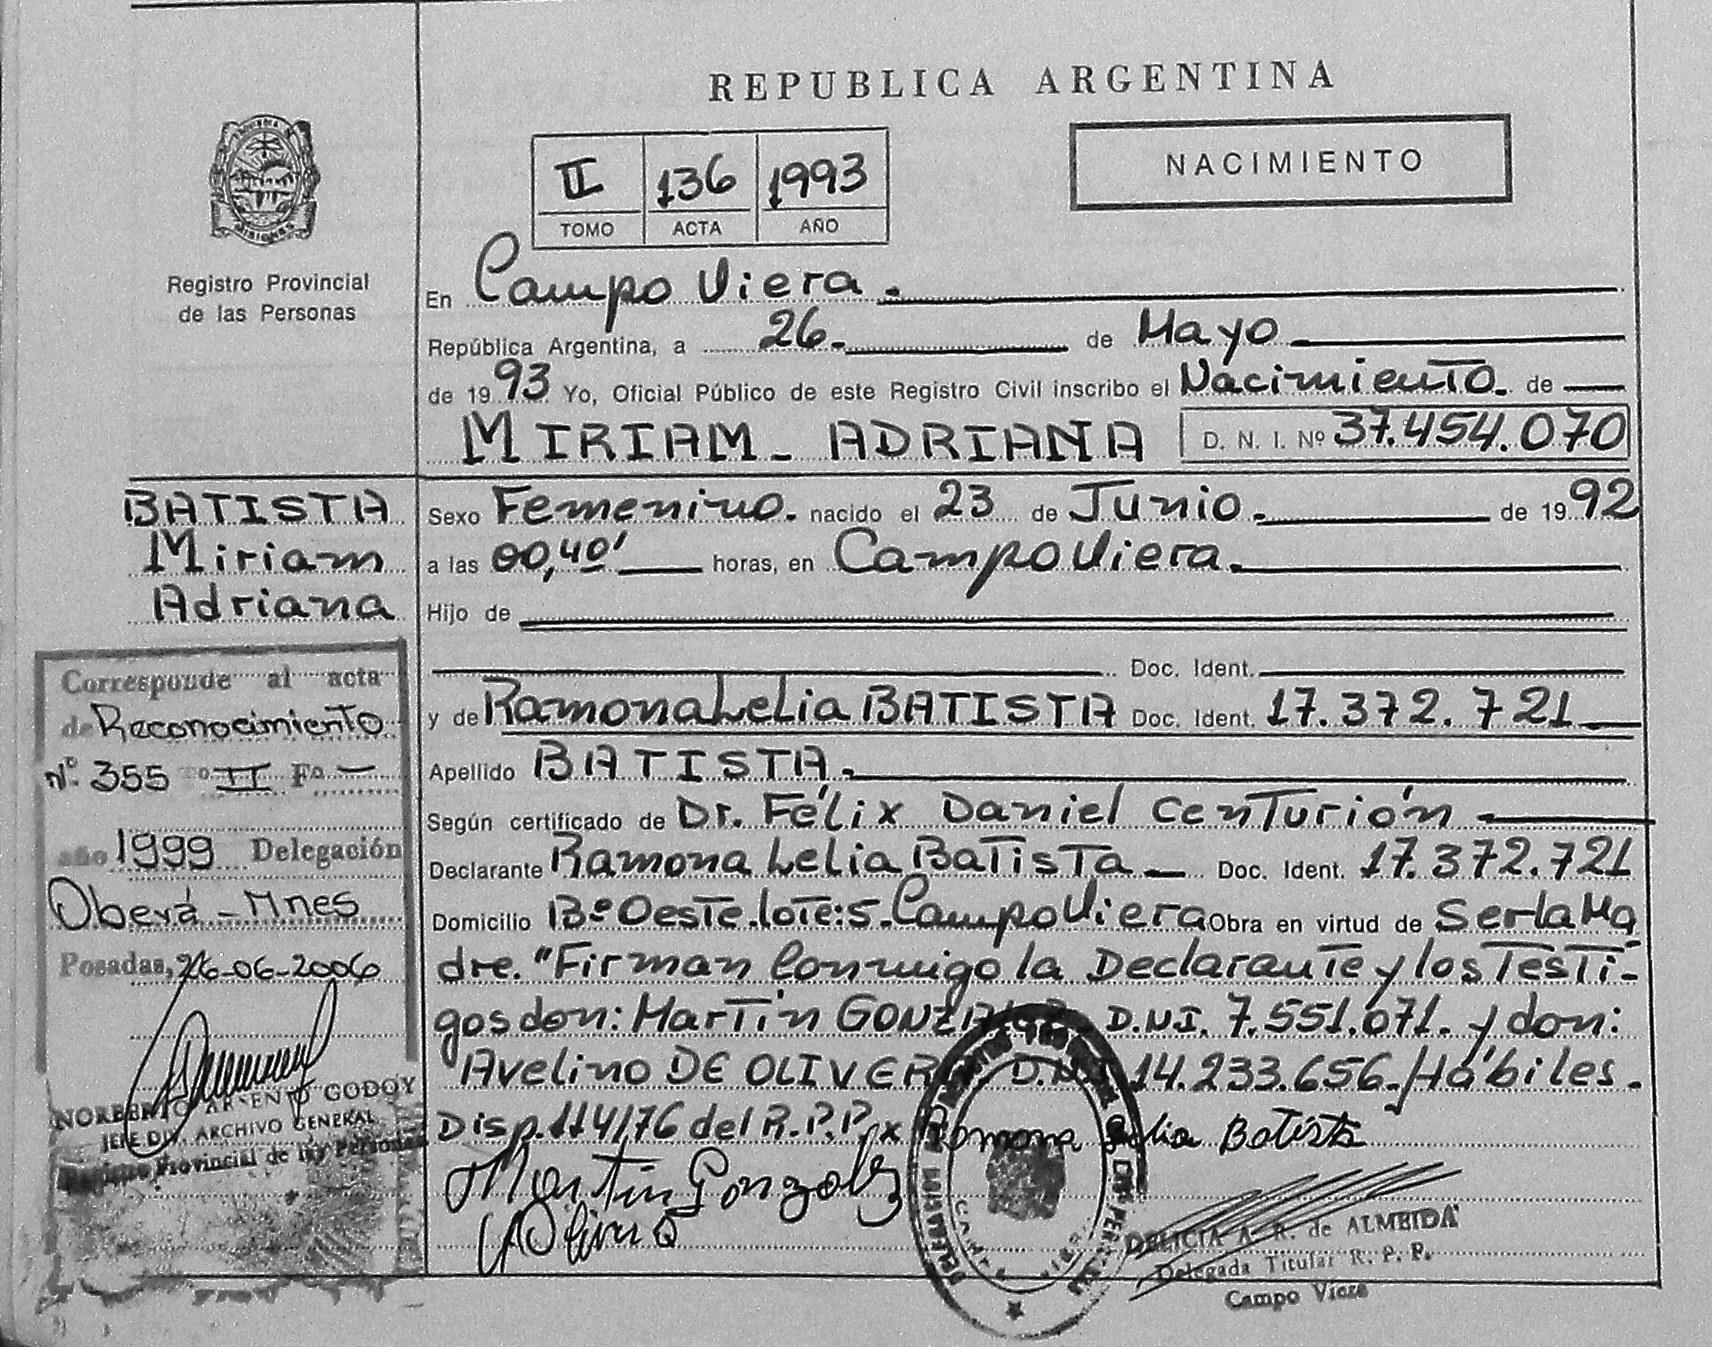 REPUBLICA ARGENTINA
NACIMIENTO
II 136 1993
TOMO ACTA AÑO
Registro Provincial
de las Personas
En Campo Viera.
República Argentina, a 26. de Mayo
de 1993 Yo, Oficial Público de este Registro Civil inscribo el Nacimiento. de
MIRIAM - ADRIANA D. N. I. Nº 37.454.070
BATISTA
Miriam
Adriana
Sexo Femenino. nacido el 23 de Junio. de 1992
a las 00,40' horas, en Campo Viera.
Hijo de
Doc. Ident.
y de Ramona Lelia BATISTA Doc. Ident. 17.372.721
Apellido BATISTA.
Según certificado de Dr. Félix Daniel Centurión
Declarante Ramona Lelia Batista Doc. Ident. 17.372.721
Domicilio Bº Oeste. lote: 5. Campo Viera Obra en virtud de Ser la Ma
dre. "Firman Conmigo la Declarante y los Testi-
gos don: Martin GONZALEZ D.N.I. 7.551.071. y don:
Avelino DE OLIVERA D.N.I. 14.233.656. Hábiles.
Disp. 114/76 del R.P.P. x Ramona Lelia Batista
Martin Gonzalez
Corresponde al acta
de Reconocimiento
Nº 355 Tº II Fº -
año 1999 Delegación
Oberá - Mnes
Posadas, 26-06-2006
NORBERTO ARSENIO GODOY
JEFE DIV. ARCHIVO GENERAL
Registro Provincial de las Personas
DELICIA A. R. de ALMEIDA
Delegada Titular R. P. P.
Campo Viera